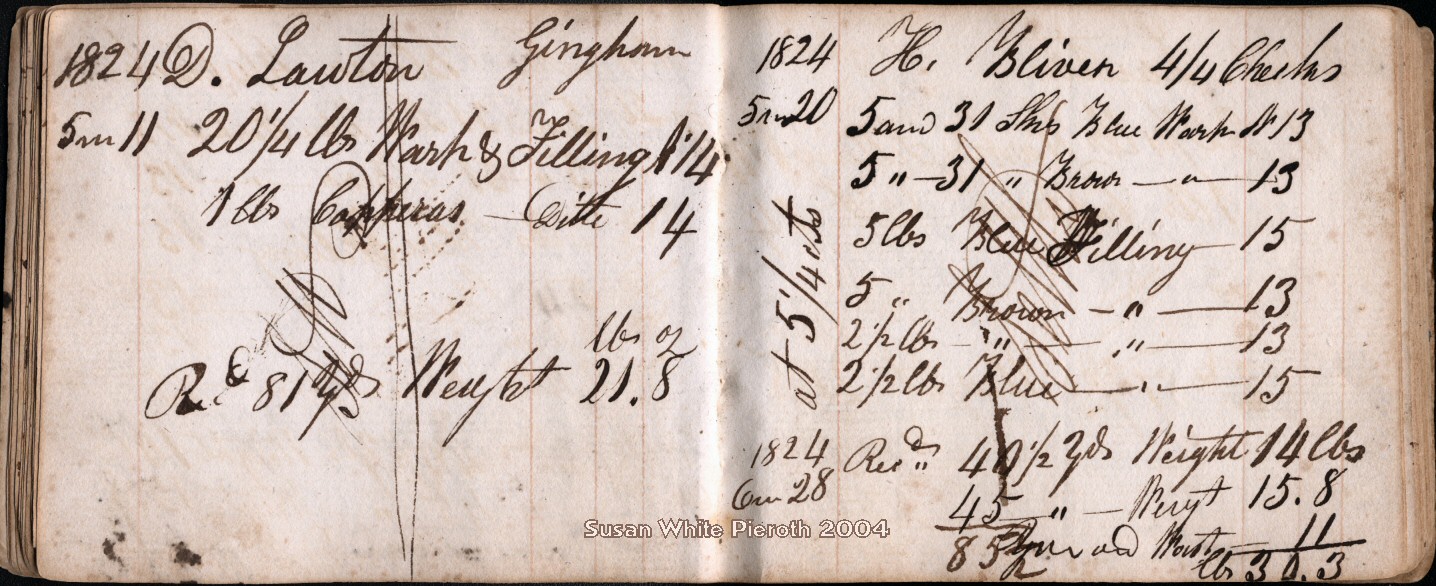 1824 D. Lawton Gingham
5m 11 20 1/4 lbs Warp & Filling No 14
1 lbs Copperas — Ditto 14
lbs oz
Recd 81 yds Weight 21.8
1824 H. Bliven 4/4 Checks
5m 20 5 and 31 Skis Blue Warp No 13
5 " — 31 " Brown — " — 13
5 lbs Blue Filling — 15
5 " Brown — " — 13
2 1/2 lbs — " — " — 13
2 1/2 lbs Blue — " — 15
at 5 1/4 cts
1824 Recd 40 1/2 yds Weight 14 lbs
6m 28 45 " — Weight 15.8
85 1/2 and 11
lbs 30.3
Susan White Pieroth 2004